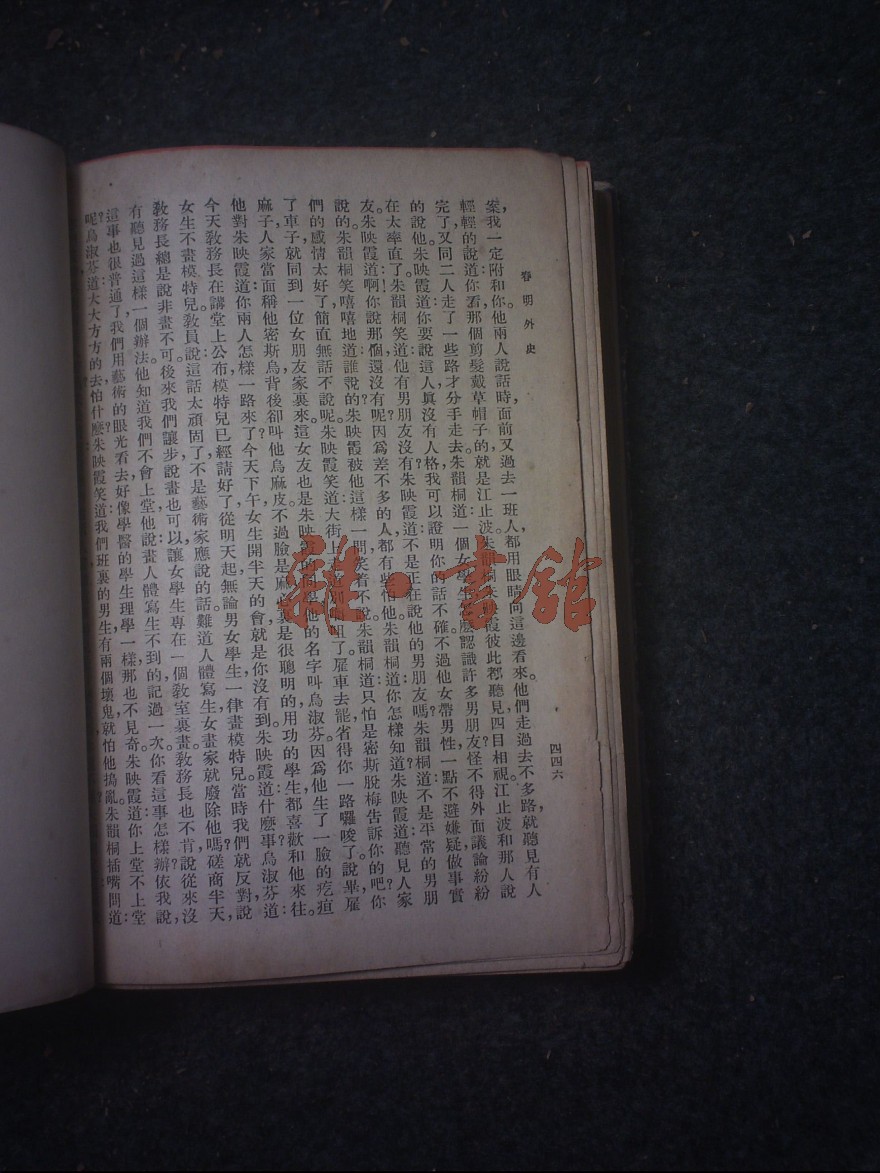 春明外史
四四六
案我一定附和你。他兩人說話時，面前又過去一班人，都用眼睛向這邊看來。他們走過去不多路，就聽見有人
輕輕的說道：你看，那個剪髮戴草帽子的，就是江止波。朱韻桐朱映霞彼此都聽見，四目相視。江止波和那人說
完了，又同二人走了一些路，才分手走去。朱韻桐道：一個女學生怎麼認識許多男朋友？怪不得外面議論紛紛
的說他。朱映霞道：你要說這人眞沒有人格，我可以證明你的話不確。不過他女帶男性，一點不避嫌疑，做事實
在太率直了。朱韻桐笑道：他有男朋友沒有？朱映霞道：不是正在說他的男朋友嗎？朱韻桐道：不是平常的男朋
友。朱映霞道：啊！你說那個，還沒有呢？因爲差不多的人，都有些怕他。朱韻桐道：你怎樣知道？朱映霞道：聽見人家
說的。朱韻桐笑嘻嘻地道：誰說的？朱映霞被他這樣一問，笑着不說。朱韻桐道：只怕是密斯脫梅告訴你的吧？你
們的感情太好了，簡直無話不說呢。朱映霞笑道：大街上了。雇車去罷，省得你一路囉唆了。說畢，雇
了車子，就同到一位女朋友家裏來。這女友也是朱映霞的同學，他的名字叫烏淑芬。因爲他生了一臉的疙疸
麻子，人家當面稱他密斯烏，背後卻叫他烏麻皮。不過臉是麻，裏是很聰明的，用功的學生，都喜歡和他來往。
他對朱映霞道：你兩人怎樣一路來了？今天下午女生開半天的會，就是你沒有到。朱映霞道：什麼事？烏淑芬道：
今天敎務長在講堂上公布，模特兒已經請好了，從明天起，無論男女學生，一律畫模特兒。當時我們就反對，說
女生不畫模特兒。敎員說：這話太頑固了，不是藝術家應說的話。難道人體寫生，女畫家就廢除他嗎？磋商半天，
敎務長總是說非畫不可。後來我們讓步，說畫也可以，讓女學生專在一個敎室裏畫。敎務長也不肯，說從來沒
有聽見過這樣一個辦法。他知道我們不會上堂，他說：畫人體寫生不到的，記過一次。你看這事怎樣辦？依我說，
這事也很普通了，我們用藝術的眼光看去，好像學醫的學生理學一樣，那也不見奇。朱映霞道：你上堂不上堂
呢？烏淑芬道：大大方方的去，怕什麼？朱映霞笑道：我們班裏的男生，有兩個壞鬼，就怕他搗亂。朱韻桐插嘴問道：
雜·書館